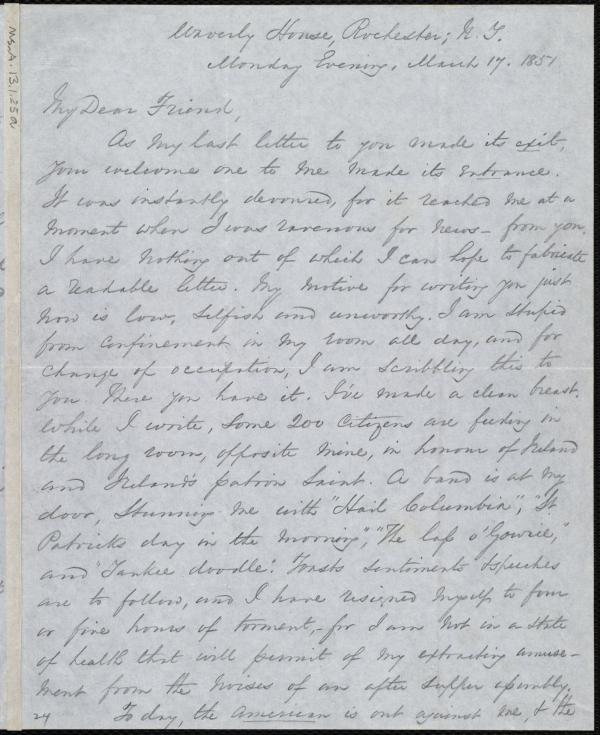 Ms.A.13.1.25a
Waverly House, Rochester, N. Y.
Monday Evening, March 17. 1851
My Dear Friend,
As my last letter to you made its exit,
your welcome one to me made its entrance.
It was instantly devoured, for it reached me at a
moment when I was ravenous for news - from you.
I have nothing out of which I can hope to fabricate
a readable letter. My motive for writing you just
now is low, selfish and unworthy. I am stupid
from confinement in my room all day, and for
change of occupation, I am scribbling this to
you. There you have it. I've made a clean breast.
While I write, some 200 Citizens are feeding in
the long room, opposite mine, in honour of Ireland
and Ireland's patron Saint. A band is at my
door, stunning me with "Hail Columbia", "St.
Patricks day in the morning", "The lass o' Gowrie,"
and "Yankee doodle". Toasts sentiments & speeches
are to follow, and I have resigned myself to four
or five hours of torment, - for I am not in a state
of health that will permit of my extracting amuse-
ment from the noises of an after supper assembly.
To day, the American is out against me, & the
24